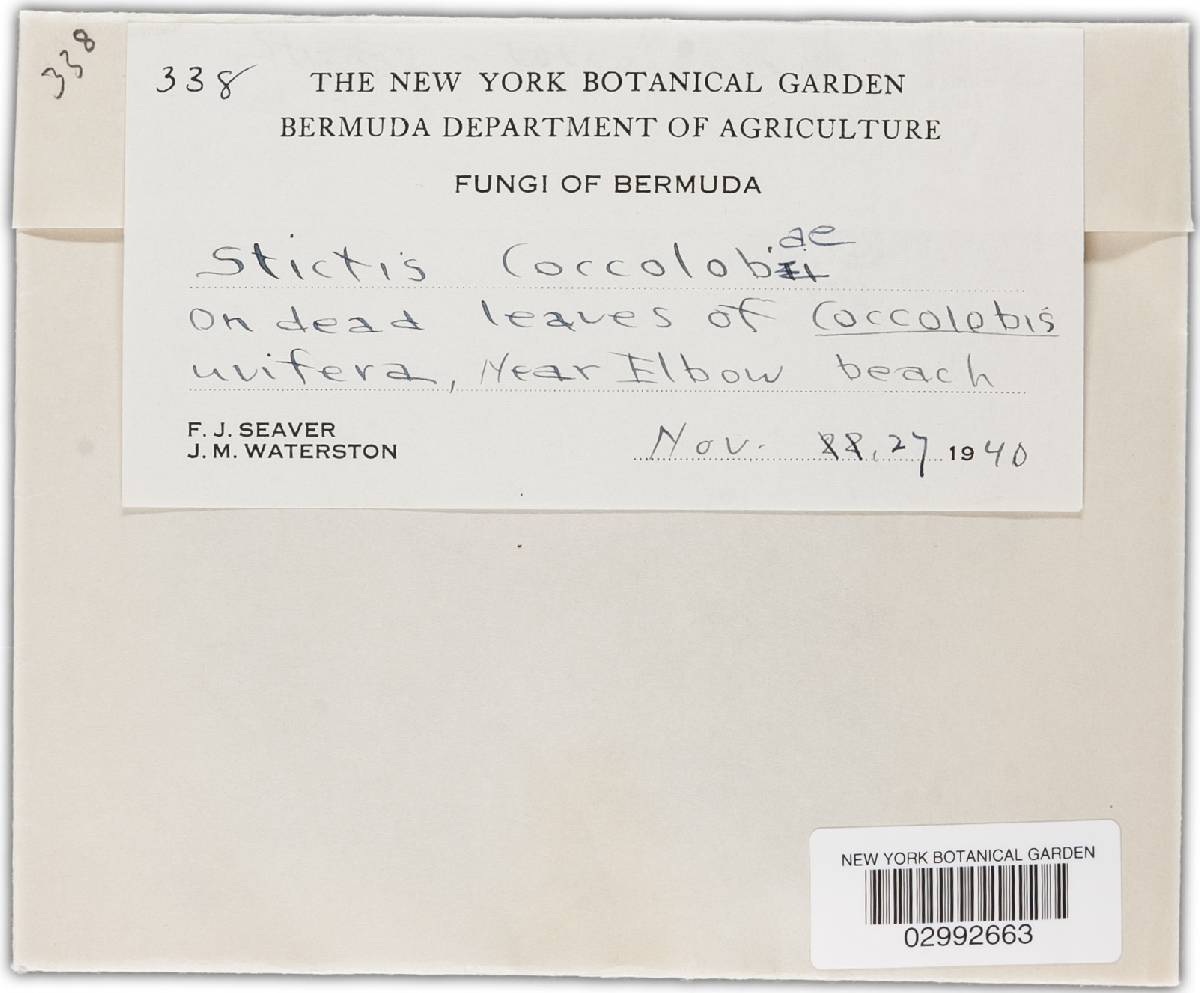 338
338 THE NEW YORK BOTANICAL GARDEN
BERMUDA DEPARTMENT OF AGRICULTURE
FUNGI OF BERMUDA
Stictis Coccolobae
On dead leaves of Coccolobis
uvifera, Near Elbow beach
F. J. SEAVER
J. M. WATERSTON
Nov. 27 1940
NEW YORK BOTANICAL GARDEN
02992663